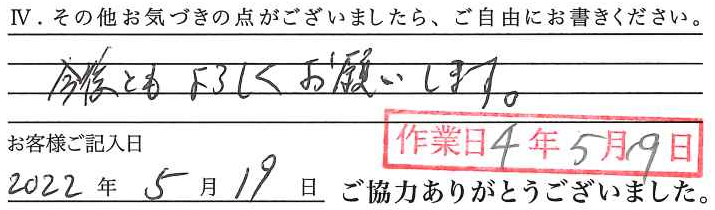 Ⅳ．その他お気づきの点がございましたら、ご自由にお書きください。
今後ともよろしくお願いします。
作業日4年5月19日
お客様ご記入日
2022年5月19日 ご協力ありがとうございました。